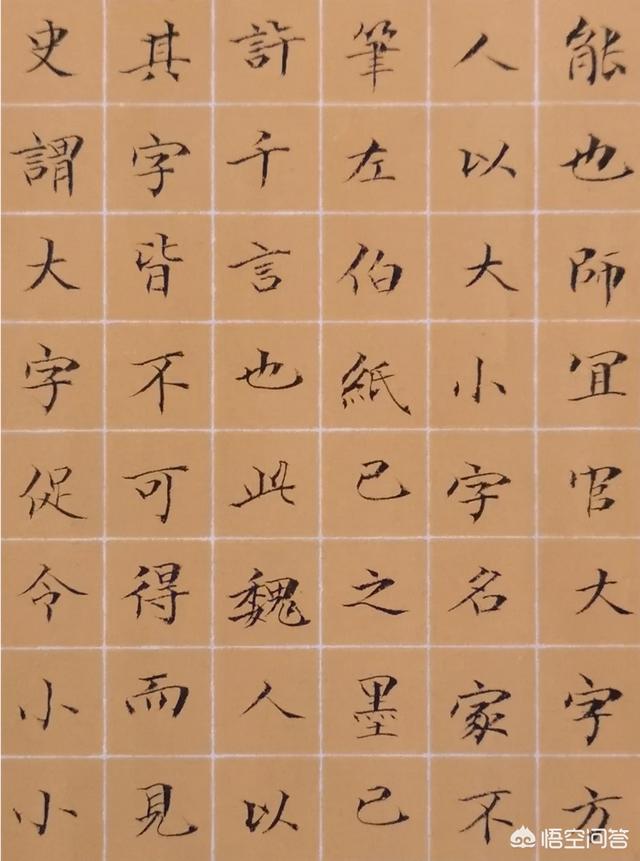 能也師宜官大字方
人以大小字名家不
筆左伯紙已之墨已
許千言也此魏人以
其字皆不可得而見
史謂大字促令小小
悟空问答